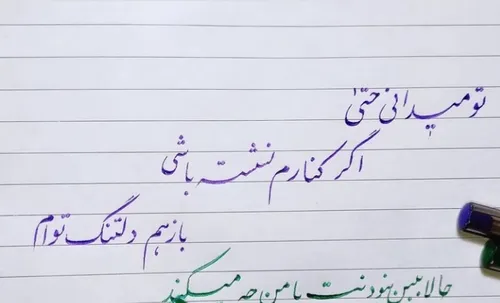 تو میدانی حتی
اگر کنارم نشسته باشی
بازهم دلتنگ توام
حالا ببین نبودنت با من چه میکند